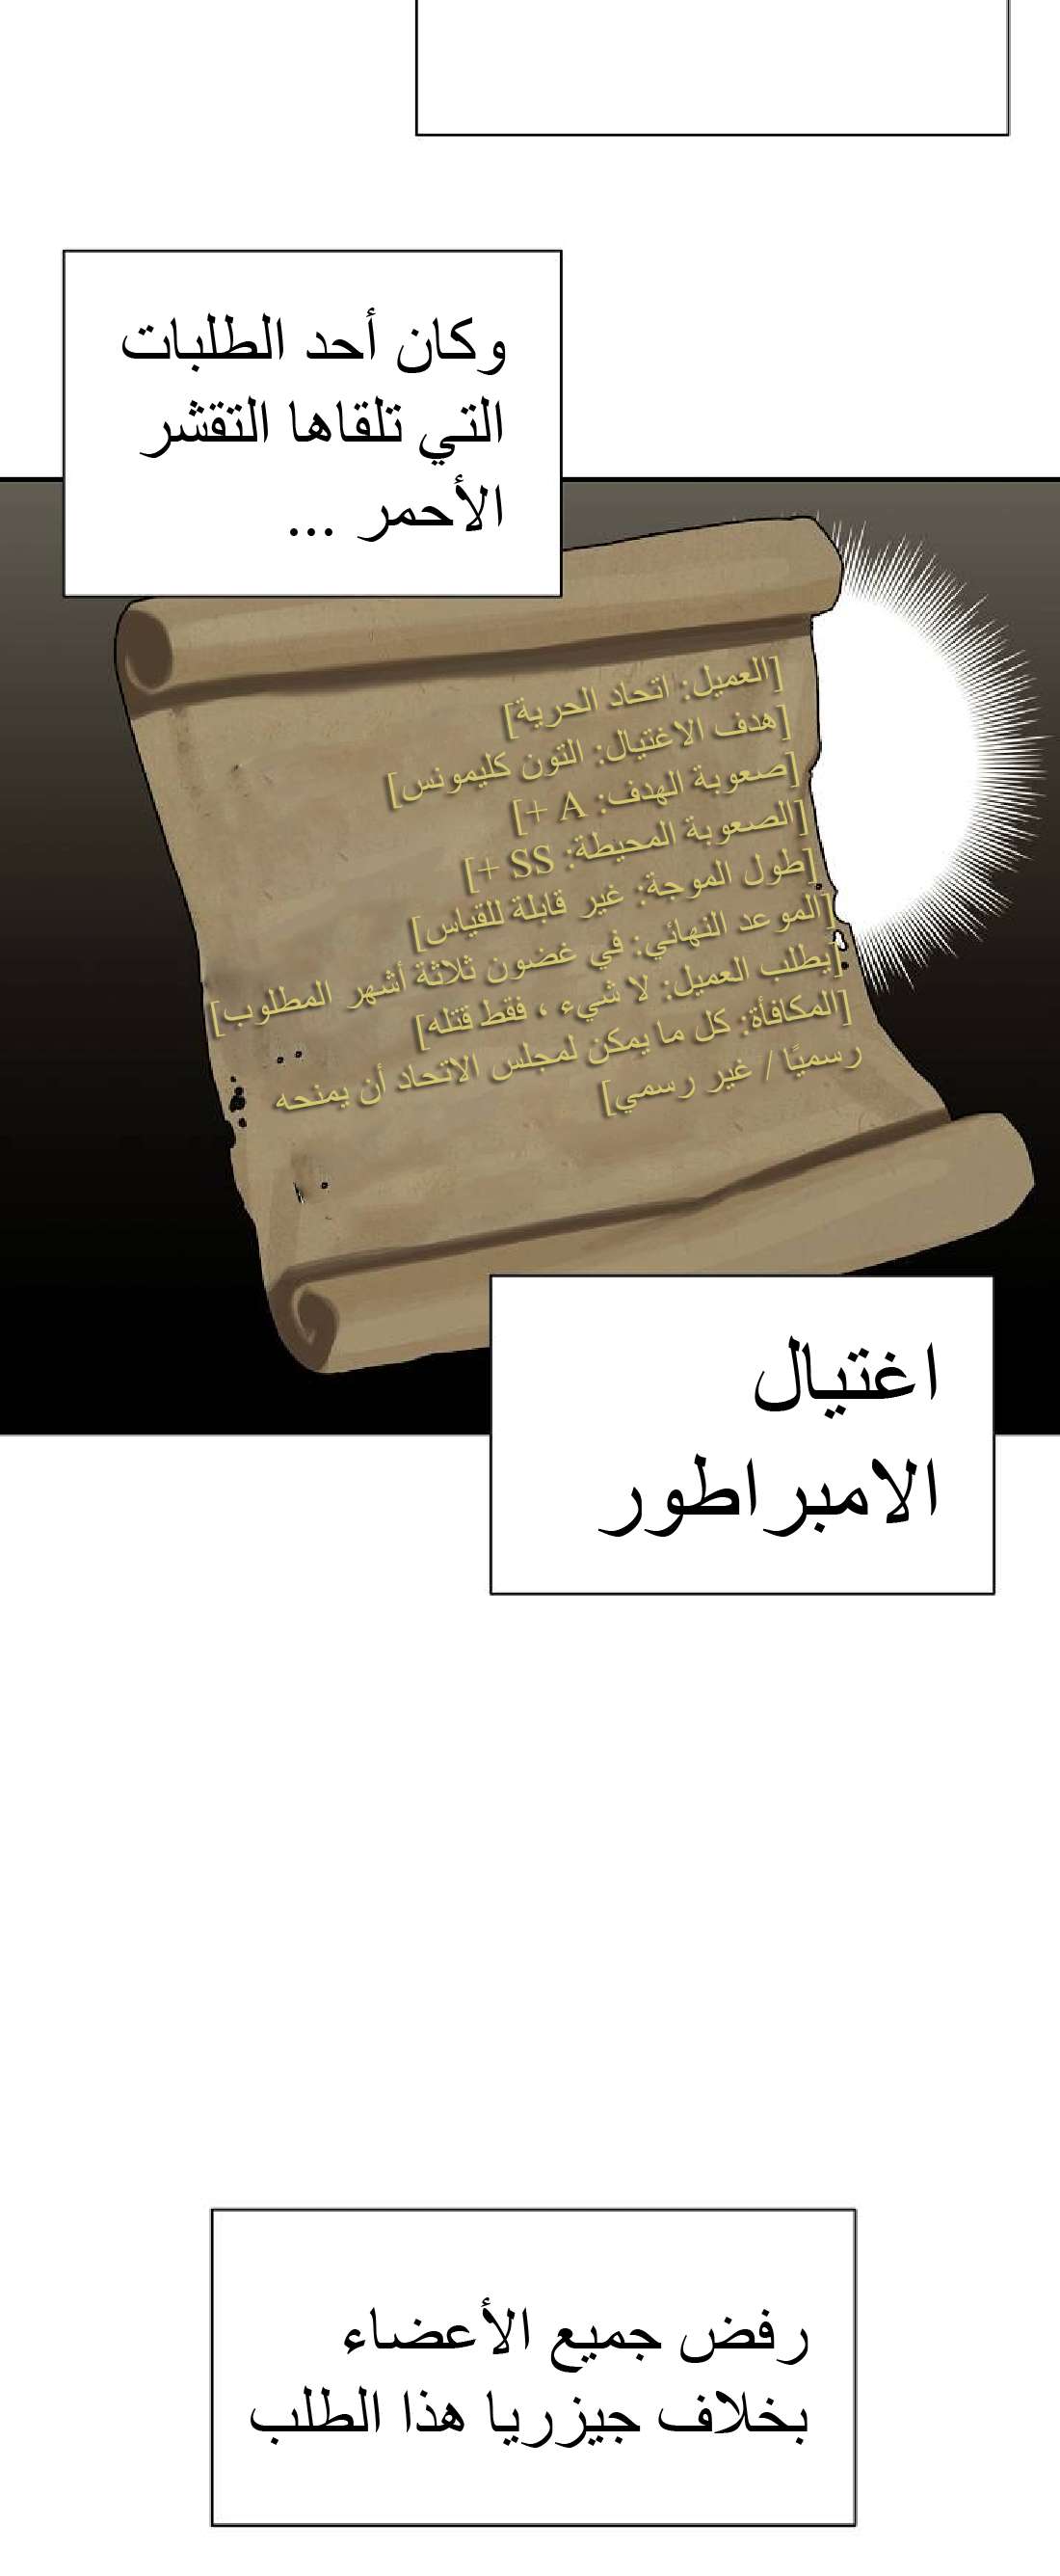 وكان أحد الطلبات
التي تلقاها التقشر
الأحمر ...
[العميل: اتحاد الحرية]
[هدف الاغتيال: التون كليمونس]
[صعوبة الهدف: A +]
[الصعوبة المحيطة: SS +]
[طول الموجة: غير قابلة للقياس]
[الموعد النهائي: في غضون ثلاثة أشهر المطلوب]
[يطلب العميل: لا شيء ، فقط قتله]
[المكافأة: كل ما يمكن لمجلس الاتحاد أن يمنحه
رسميًا / غير رسمي]
اغتيال
الامبراطور
رفض جميع الأعضاء
بخلاف جيزريا هذا الطلب